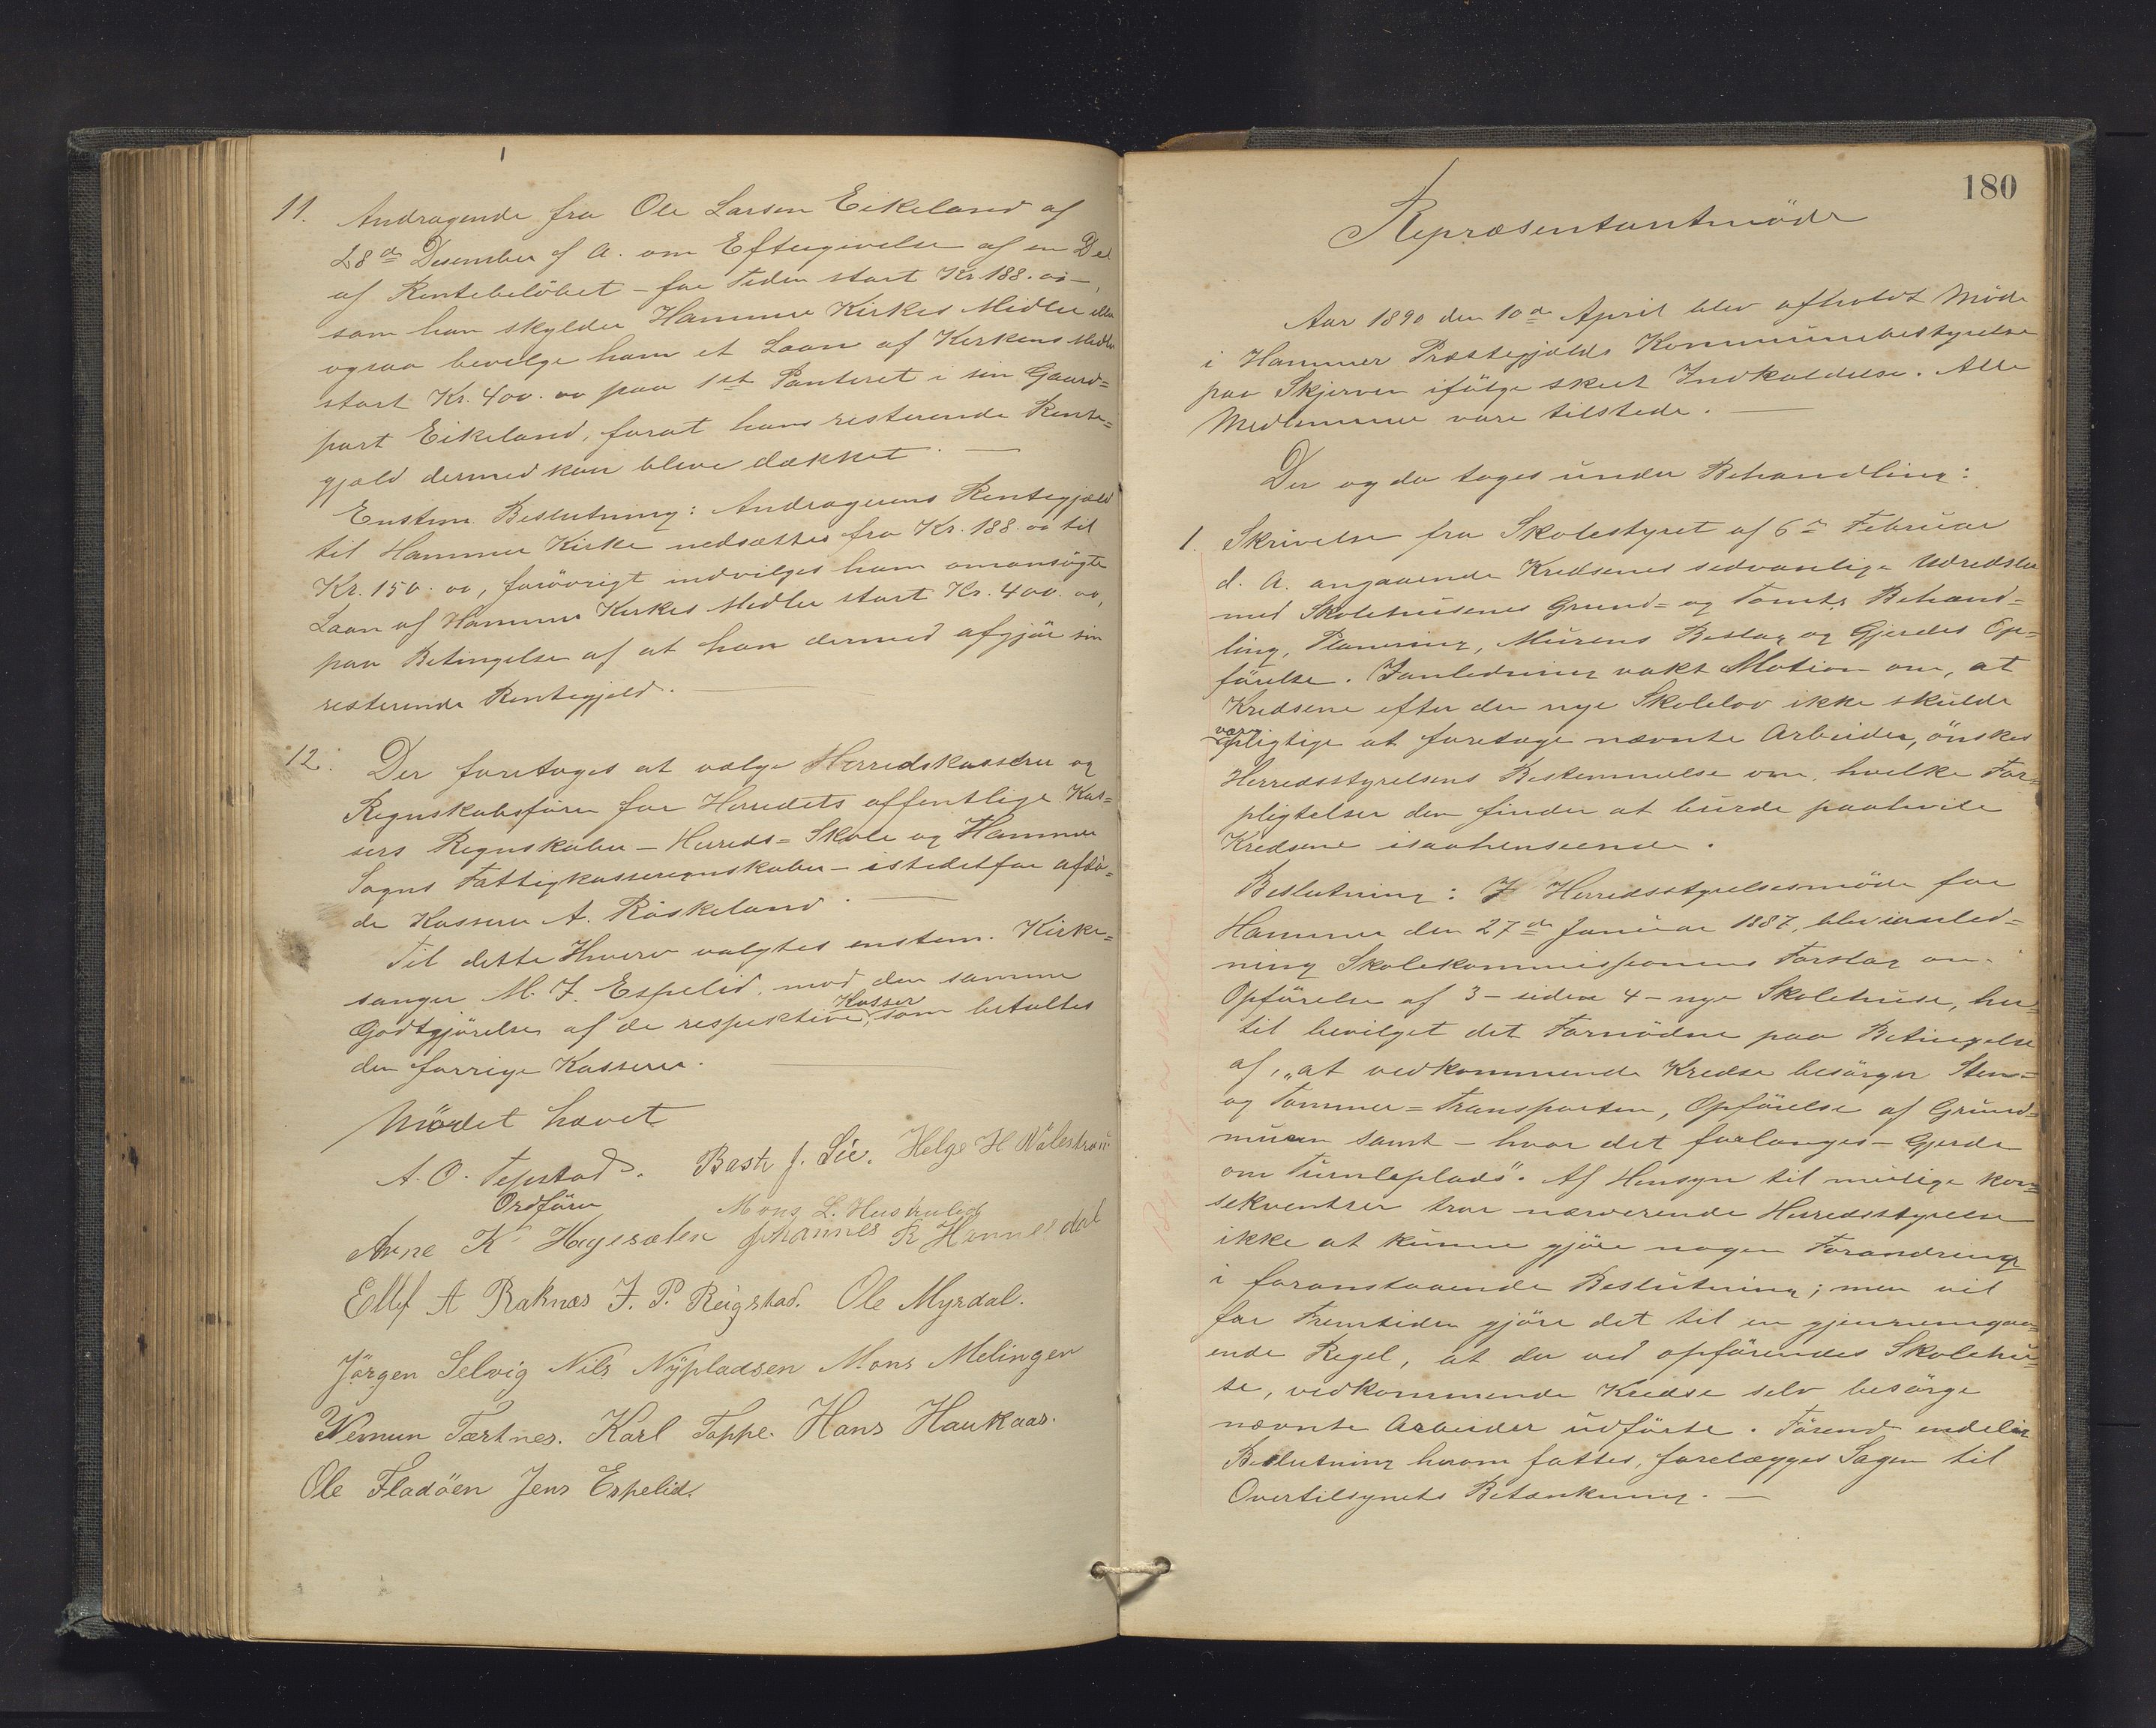 11. Andragende fra Ole Larsen Eikeland af
28de Desember f. A. om Eftergivelse af en Del
af Rentebeløbet – for Tiden stort Kr. 188.00 –,
som han skylder Hammer Kirkes Midler eller
ogsaa bevilge ham et Laan af Kirkens Midler
stort Kr. 400.00 paa 1st Panteret i sin Gaard=
part Eikeland, forat hans resterende Rente=
gjæld dermed kan blive dækket. —
Enstem. Beslutning: Andragerens Rentegjæld
til Hammer Kirke nedsættes fra Kr. 188.00 til
Kr. 150.00, forövrigt indvilges ham omansögte
Laan af Hammer Kirkes Midler stort Kr. 400.00,
paa Betingelse af at han dermed afgjör sin
resterende Rentegjeld. —
12. Der foretoges at vælge Herredskasserer og
Regnskabsförer for Herredets offentlige Kas=
sers Regnskaber – Herreds= Skole og Hammer
Sogns Fattigkasseregnskaber – istedetfor afdö=
de Kasserer A. Röskeland. —
Til dette Hverv valgtes enstem. Kirke=
sanger M. J. Espelid, mod den samme
Godtgjörelse af de respektive Kasser, som betaltes
den forrige Kasserer. —
Mödet hævet
A. O. Tepstad. Bastr J. Lie. Helge H Votlestraum
Ordförer Mons L. Hushuled
Arne K Hagesæter Johannes R Hannesdal
Ellef A Raknes J. P. Reigstad. Ole Myrdal.
Jörgen Selvig Nils Nÿpladsen Mons Melingen
Nemun Tærtnes. Karl Toppe. Hans Haukaas.
Ole Fladöen Jens Espelid.
180
Repræsentantmöde
Aar 1890 den 10de April blev afholdt Möde
i Hammer Præstegjælds Kommunebestyrelse
paa Skjerven ifölge skeet Indkaldelse. Alle
Medlemmer vare tilstede. —
Der og da toges under Behandling:
1. Skrivelse fra Skolestyret af 6te Februar
d. A. angaaende Kredsenes sedvanlige Udredsler
med Skolehusenes Grund= og Tomts Behand=
ling, Planering, Murens Beslag og Gjerdes Op=
förelse. Ianledning vakt Motion om, at
Kredsene efter den nye Skolelov ikke skulde
være pligtige at foretage nævnte Arbeider, önskes
Herredsstyrelsens Bestemmelse om, hvilke For=
pligtelser den finder at burde paahvile
Kredsene isaahenseende.
Beslutning: I Herredsstyrelsesmöde for
Hammer den 27de Januar 1887, blev ianled=
ning Skolekommissionens Forslag om
Opförelse af 3 – siden 4 – nye Skolehuse, her=
til bevilget det Fornödne paa Betingelse
af, „at vedkommende Kredse besörger Sten=
og Tömmer=Transporten, Opförelse af Grund=
muren samt – hvor det forlanges – Gjerde
om Turnleplads“. Af Hensyn til mulige kon=
sekventser tror nærværende Herredsstyrelse
ikke at kunne gjöre nogen Forandring
i foranstaaende Beslutning; men vil
for Fremtiden gjöre det til en gjennemgaa=
ende Regel, at der ved opförendes Skolehu=
se, vedkommende Kredse selv besörge
nævnte Arbeider udförte. Förend endelig
Beslutning herom fattes, forelægges Sagen til
Overtilsynets Betænkning. —